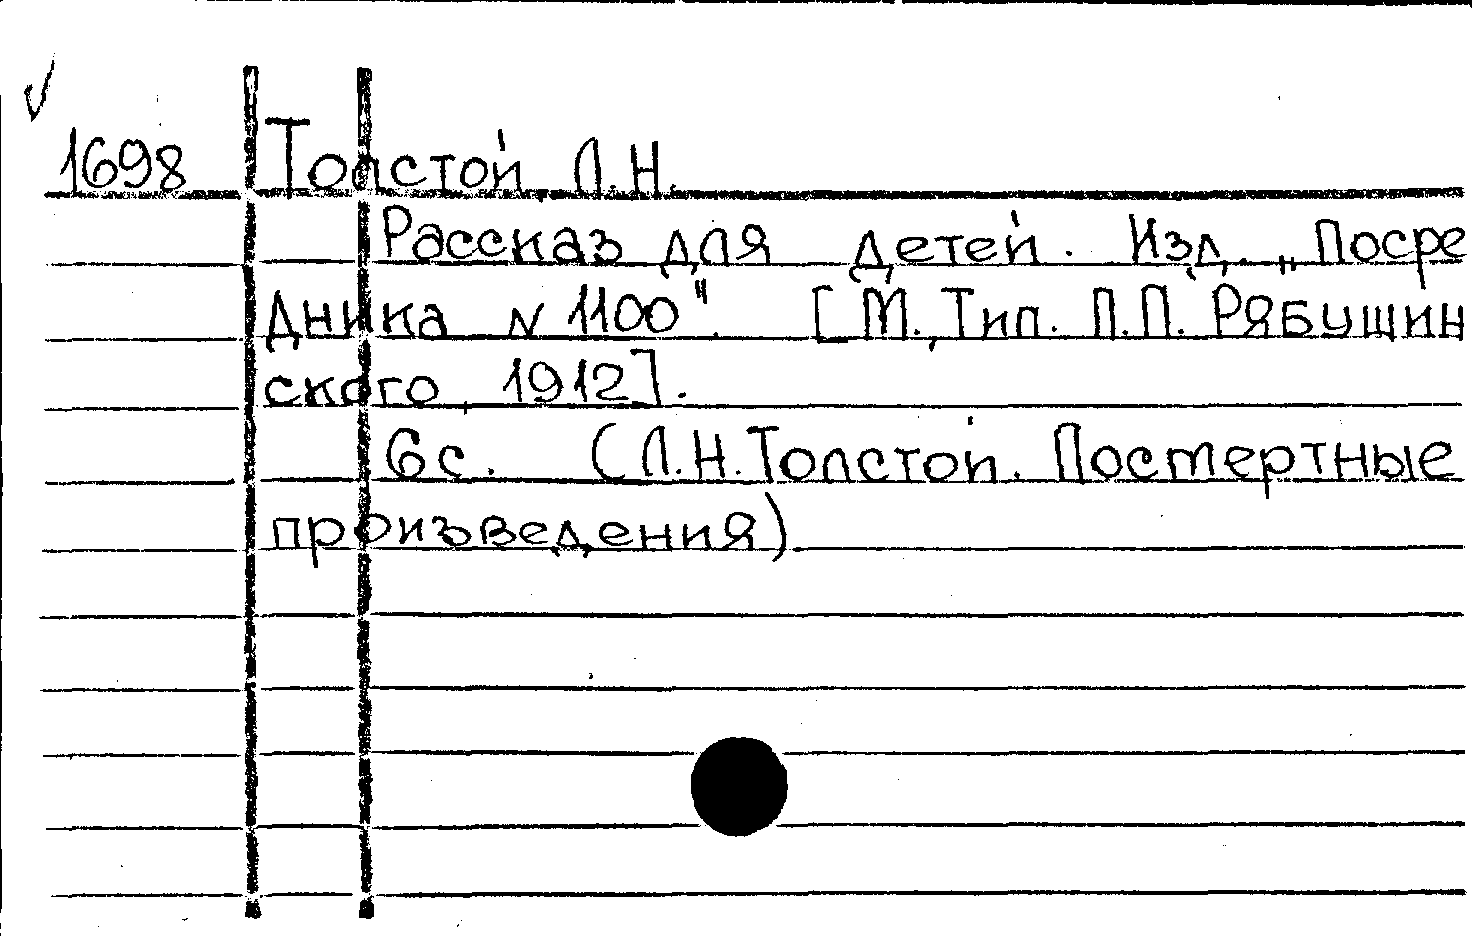 1698 Толстой Л.Н.
Рассказ для детей. Изд. „Посре
дника N 1100". [М., Тип. П.П. Рябушин
ского, 1912].
6 с. (Л.Н.Толстой. Постертные
произведения)